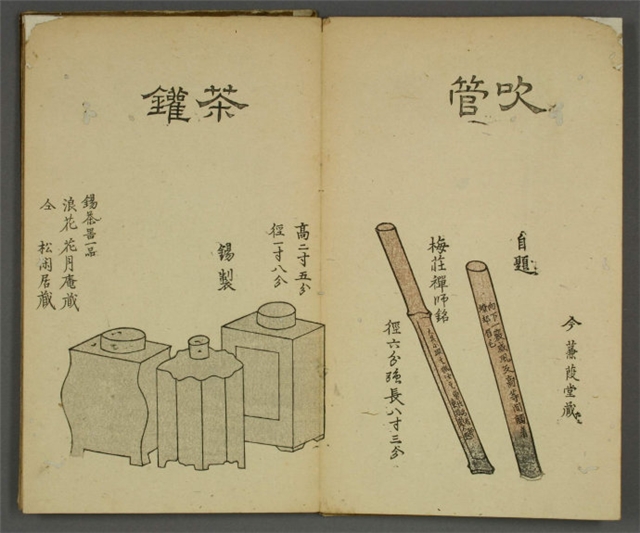 吹管
今 蒹葭堂蔵
自題
梅荘禪師銘
徑六分強長八寸三分
茶鑵
高二寸五分
徑一寸八分
錫製
錫茶器一品
浪花 花月庵蔵
仝 松閑居蔵